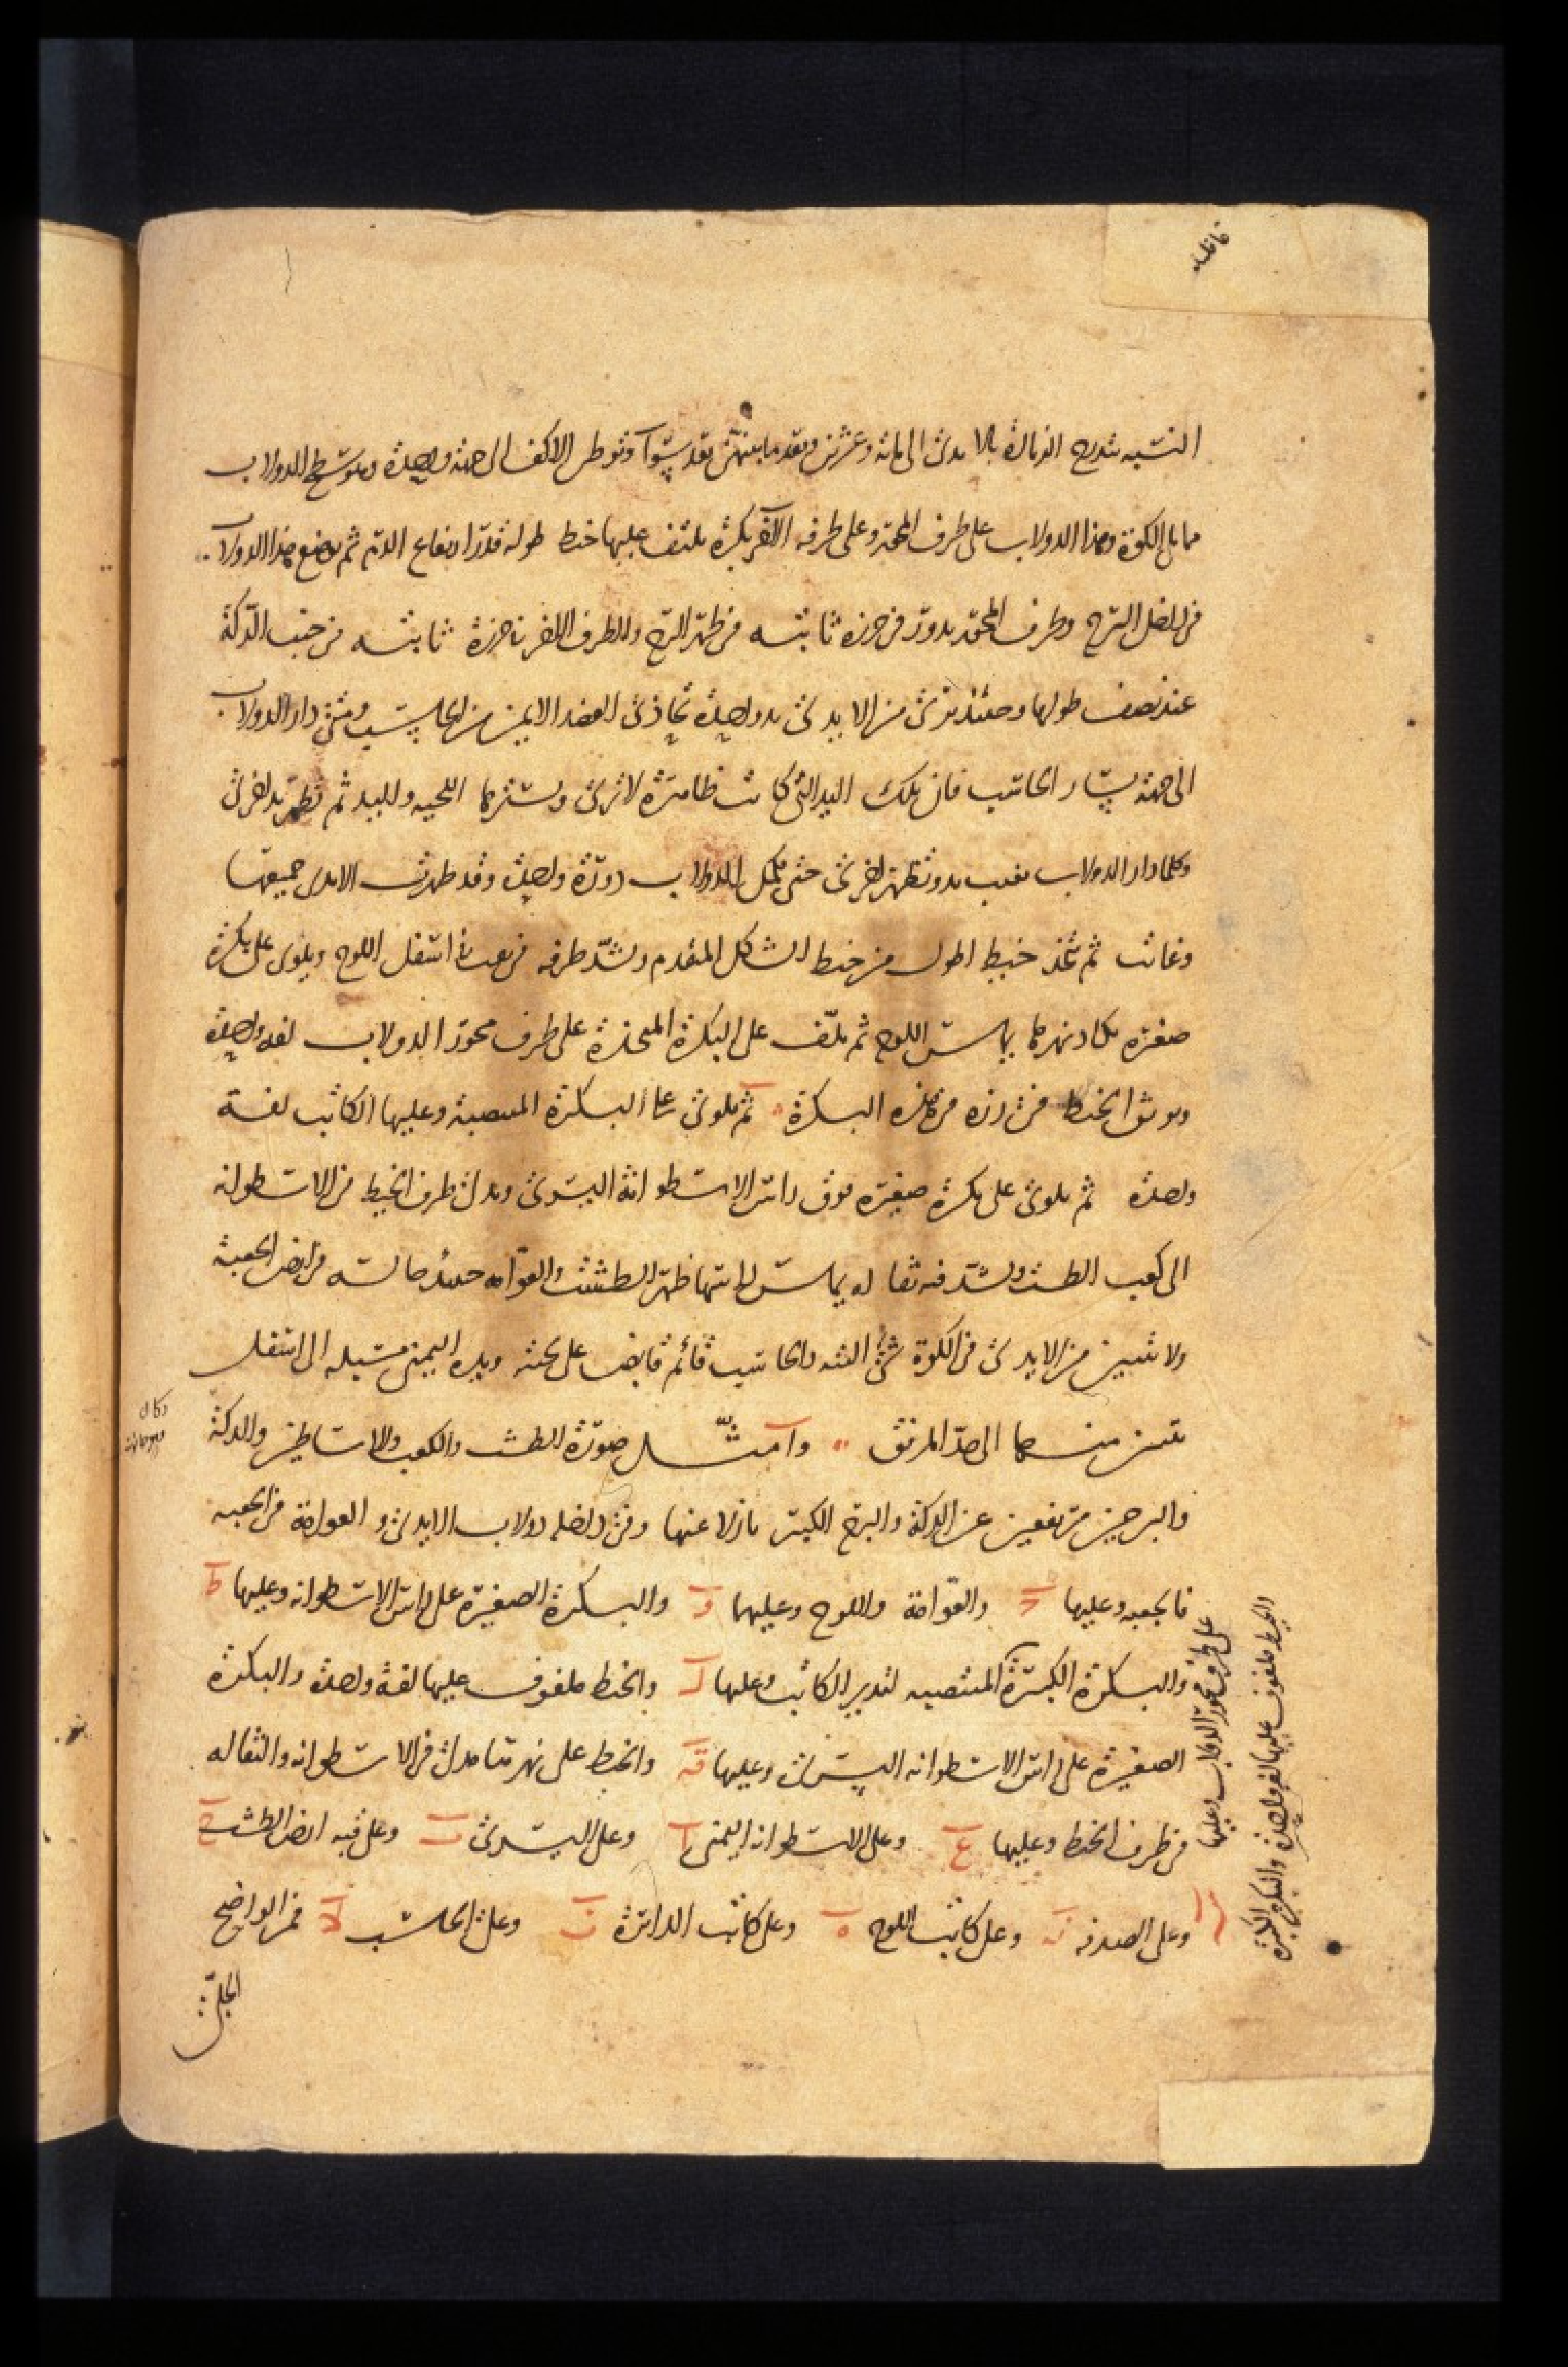 النسبه بتدرج الزيادة بالايدى الى مائه وعشرين وبعد ما بينهن بعد سوآ وتوطى الاكف الى جهة واحدة وبتوسط الدولاب
مما يلى الكوة وهذا الدولاب على طرف المحور وعلى طرفه الآخر بكرة يلتف عليها خيط طوله قدر ارتفاع الدم ثم يوضع هذا الدولاب
فى داخل البرج وطرف المحور يدور فى خرزه ثابته فى ظهر البرج والطرف الاخر فى خرزة ثابته فى جنب الدكة
عند نصف طولها وحينئذ ترى من الايدى يد واحدة تحاذى العضد الايمن من الحاسب ومتى دار الدولاب
الى جهة يسار الحاسب فان تلك اليد التى كانت ظاهرة لا ترى وتسترها اللحيه واليد ثم تظهر يد اخرى
وكلما دار الدولاب تغيب يد وتظهر اخرى حتى يكمل الدولاب دورة واحدة وقد ظهرت الايدى جميعها
وغابت ثم يتخذ خيط اطول من خيط الشكل المتقدم ويشد طرفه فى اسفل اللوح ويلوى على بكرة
صغيرة يكاد نهرها يماس اللوح ثم يلف على البكرة المتخذة على طرف محور الدولاب لفة واحدة
ويوثق الخيط فى رزه فى هذه البكرة ثم يلوى على البكرة المنتصبة وعليها الكاتب لفة
واحدة ثم يلوى على بكرة صغيرة فوق راس الاسطوانة اليسرى ويدلى طرف الخيط فى الاسطوانه
الى كعب الطست ويشد فيه ثقاله يماس راسها ظهر الطست والعوامه حينئذ جالسه فى ارض الحقبة
ولا تبين من الايدى فى الكوة شئ البته والحاسب قائم قابض على لحيته ويده اليمنى مسبله الى اسفل
يتبين منها الى حد المرفق وامثل صورة الطست والكعب والاساطين والدكة
والبرجين مرتفعين عن الدكة والبرج الكبير نازلا عنها وفى داخله دولاب الايدى والعوامة فى الحقبه
فالحقبه وعليها والعوامة واللوح وعليهما و والبكرة الصغيرة على راس الاسطوانه وعليها ط
والبكرة الكبيرة المنتصبه لتدير الكاتب وعليها ل والخيط ملفوف عليها لفة واحدة والبكرة
الصغيرة على راس الاسطوانه اليسرى وعليها والخيط على نهرها مدلى فى الاسطوانه والثقاله
فى طرف الخيط وعليها ع وعلى الاسطوانه اليمنى ا وعلى اليسرى ب وعلى قبه ارض الطست ح
وعلى الصدفه وعلى كاتب اللوح ه وعلى كاتب الدائرة ن وعلى الحاسب لا فمن الواضح
الجلى
على طرف محور الدولاب وعليها
والخيط ملفوف عليها لفة واحدة والبكرة الكبيرة